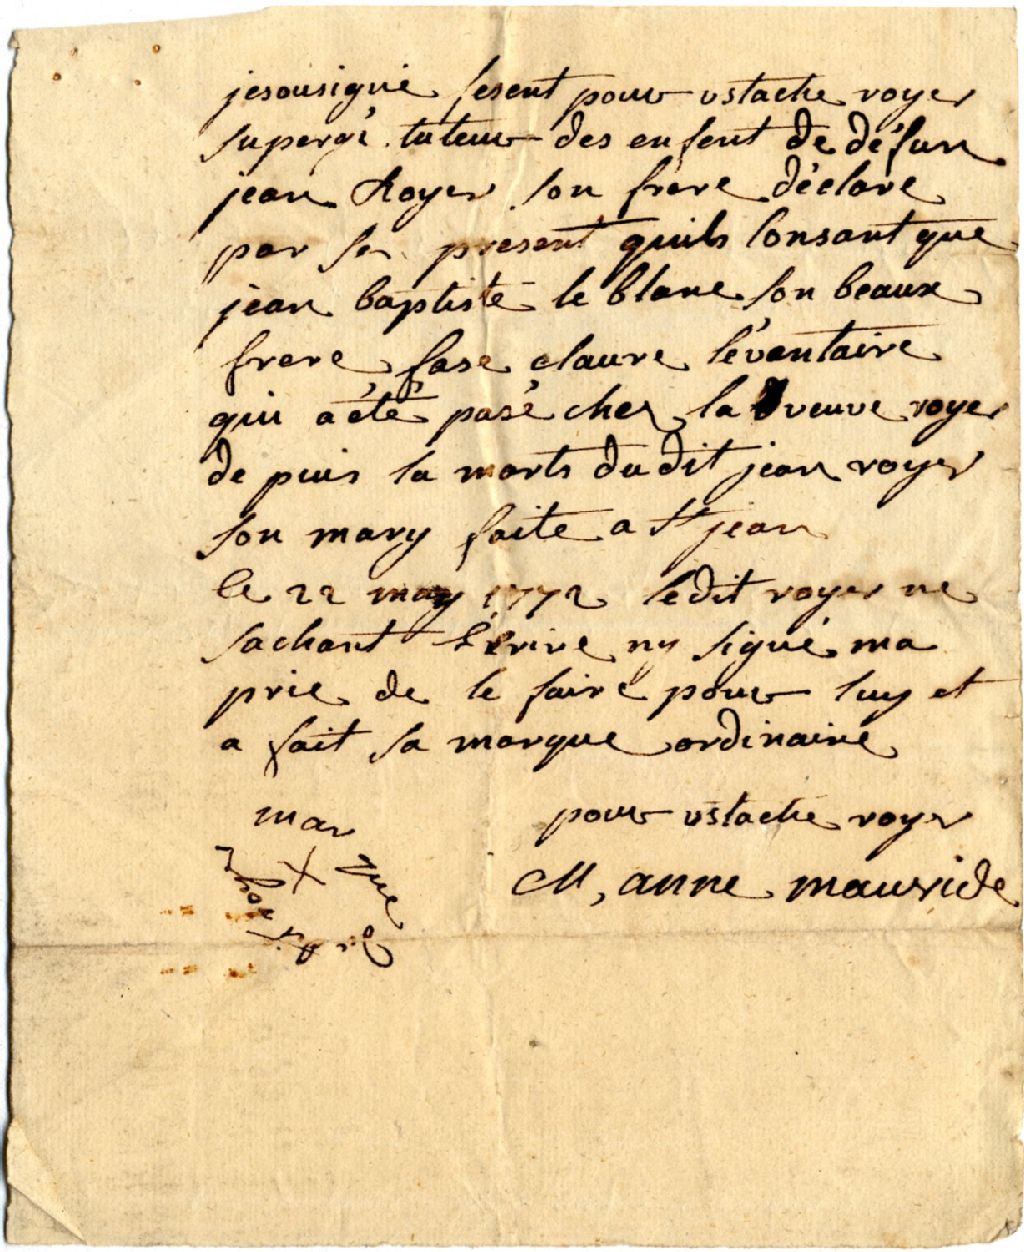 jesousigné fesent pour ustache royer
supergé tuteur des enfent de défun
jean Royer son frere déclare
par se present quils Consant que
jean baptiste le blanc son beaux
frere fase claure léventaire
qui a été pasé chez la veuve royer
de puis la morts du dit jean royer
son mary faite a St jean
le 22 may 1772 ledit royer ne
sachantÉcrire ny signé ma
prie de le faire pour luy et
a fait sa marque ordinaire
mar X que
pour ustache royer
M, anne